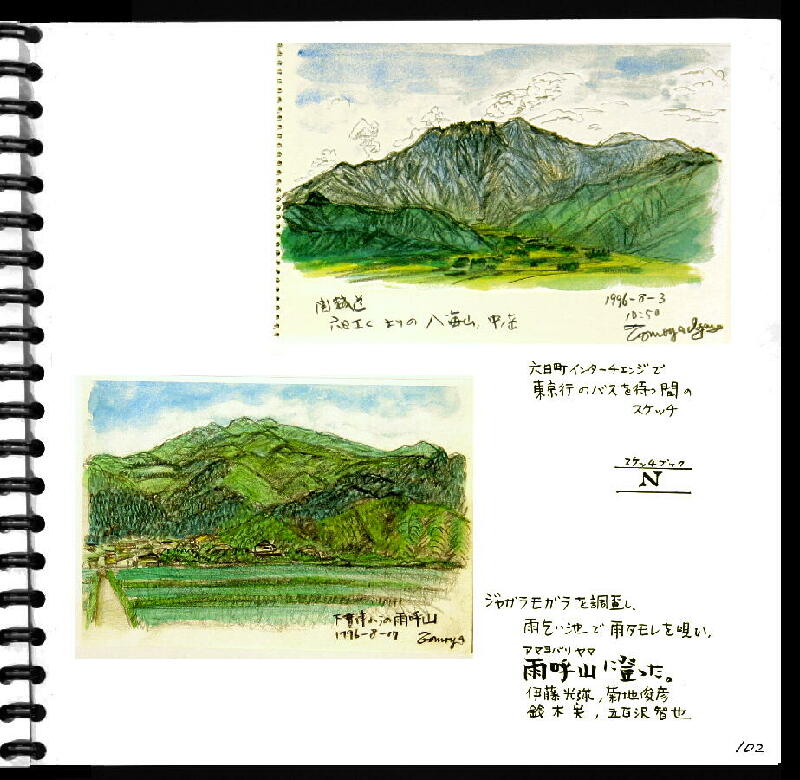 関越道
六日I.C よりの 八海山, 中岳
1996-8-3
10:50
六日町インターチェンジで
東京行のバスを待つ間の
スケッチ
スケッチブック
N
下貫津からの雨呼山
1996-8-07
Tomoya
ジャガラモガラを調査し、
雨乞い池で雨タモレを唄い、
アマヨバリヤマ
雨呼山に登った。
伊藤光雄, 菊地俊彦
鈴木実, 五百沢智也
102